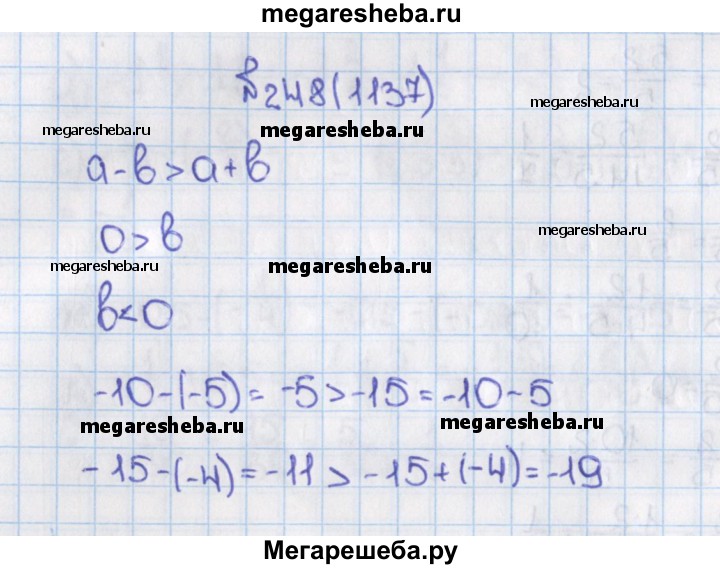 megaresheba.ru
№248(1137)
megaresheba.ru megaresheba.ru
а-в>а+в
megaresheba.ru
0>в
megaresheba.ru megaresheba.ru
в<0
-10-(-5)= -5>-15=-10-5
megaresheba.ru megaresheba.ru
-15-(-4)=-11>-15+(-4)=-19
Мегарешеба.ру